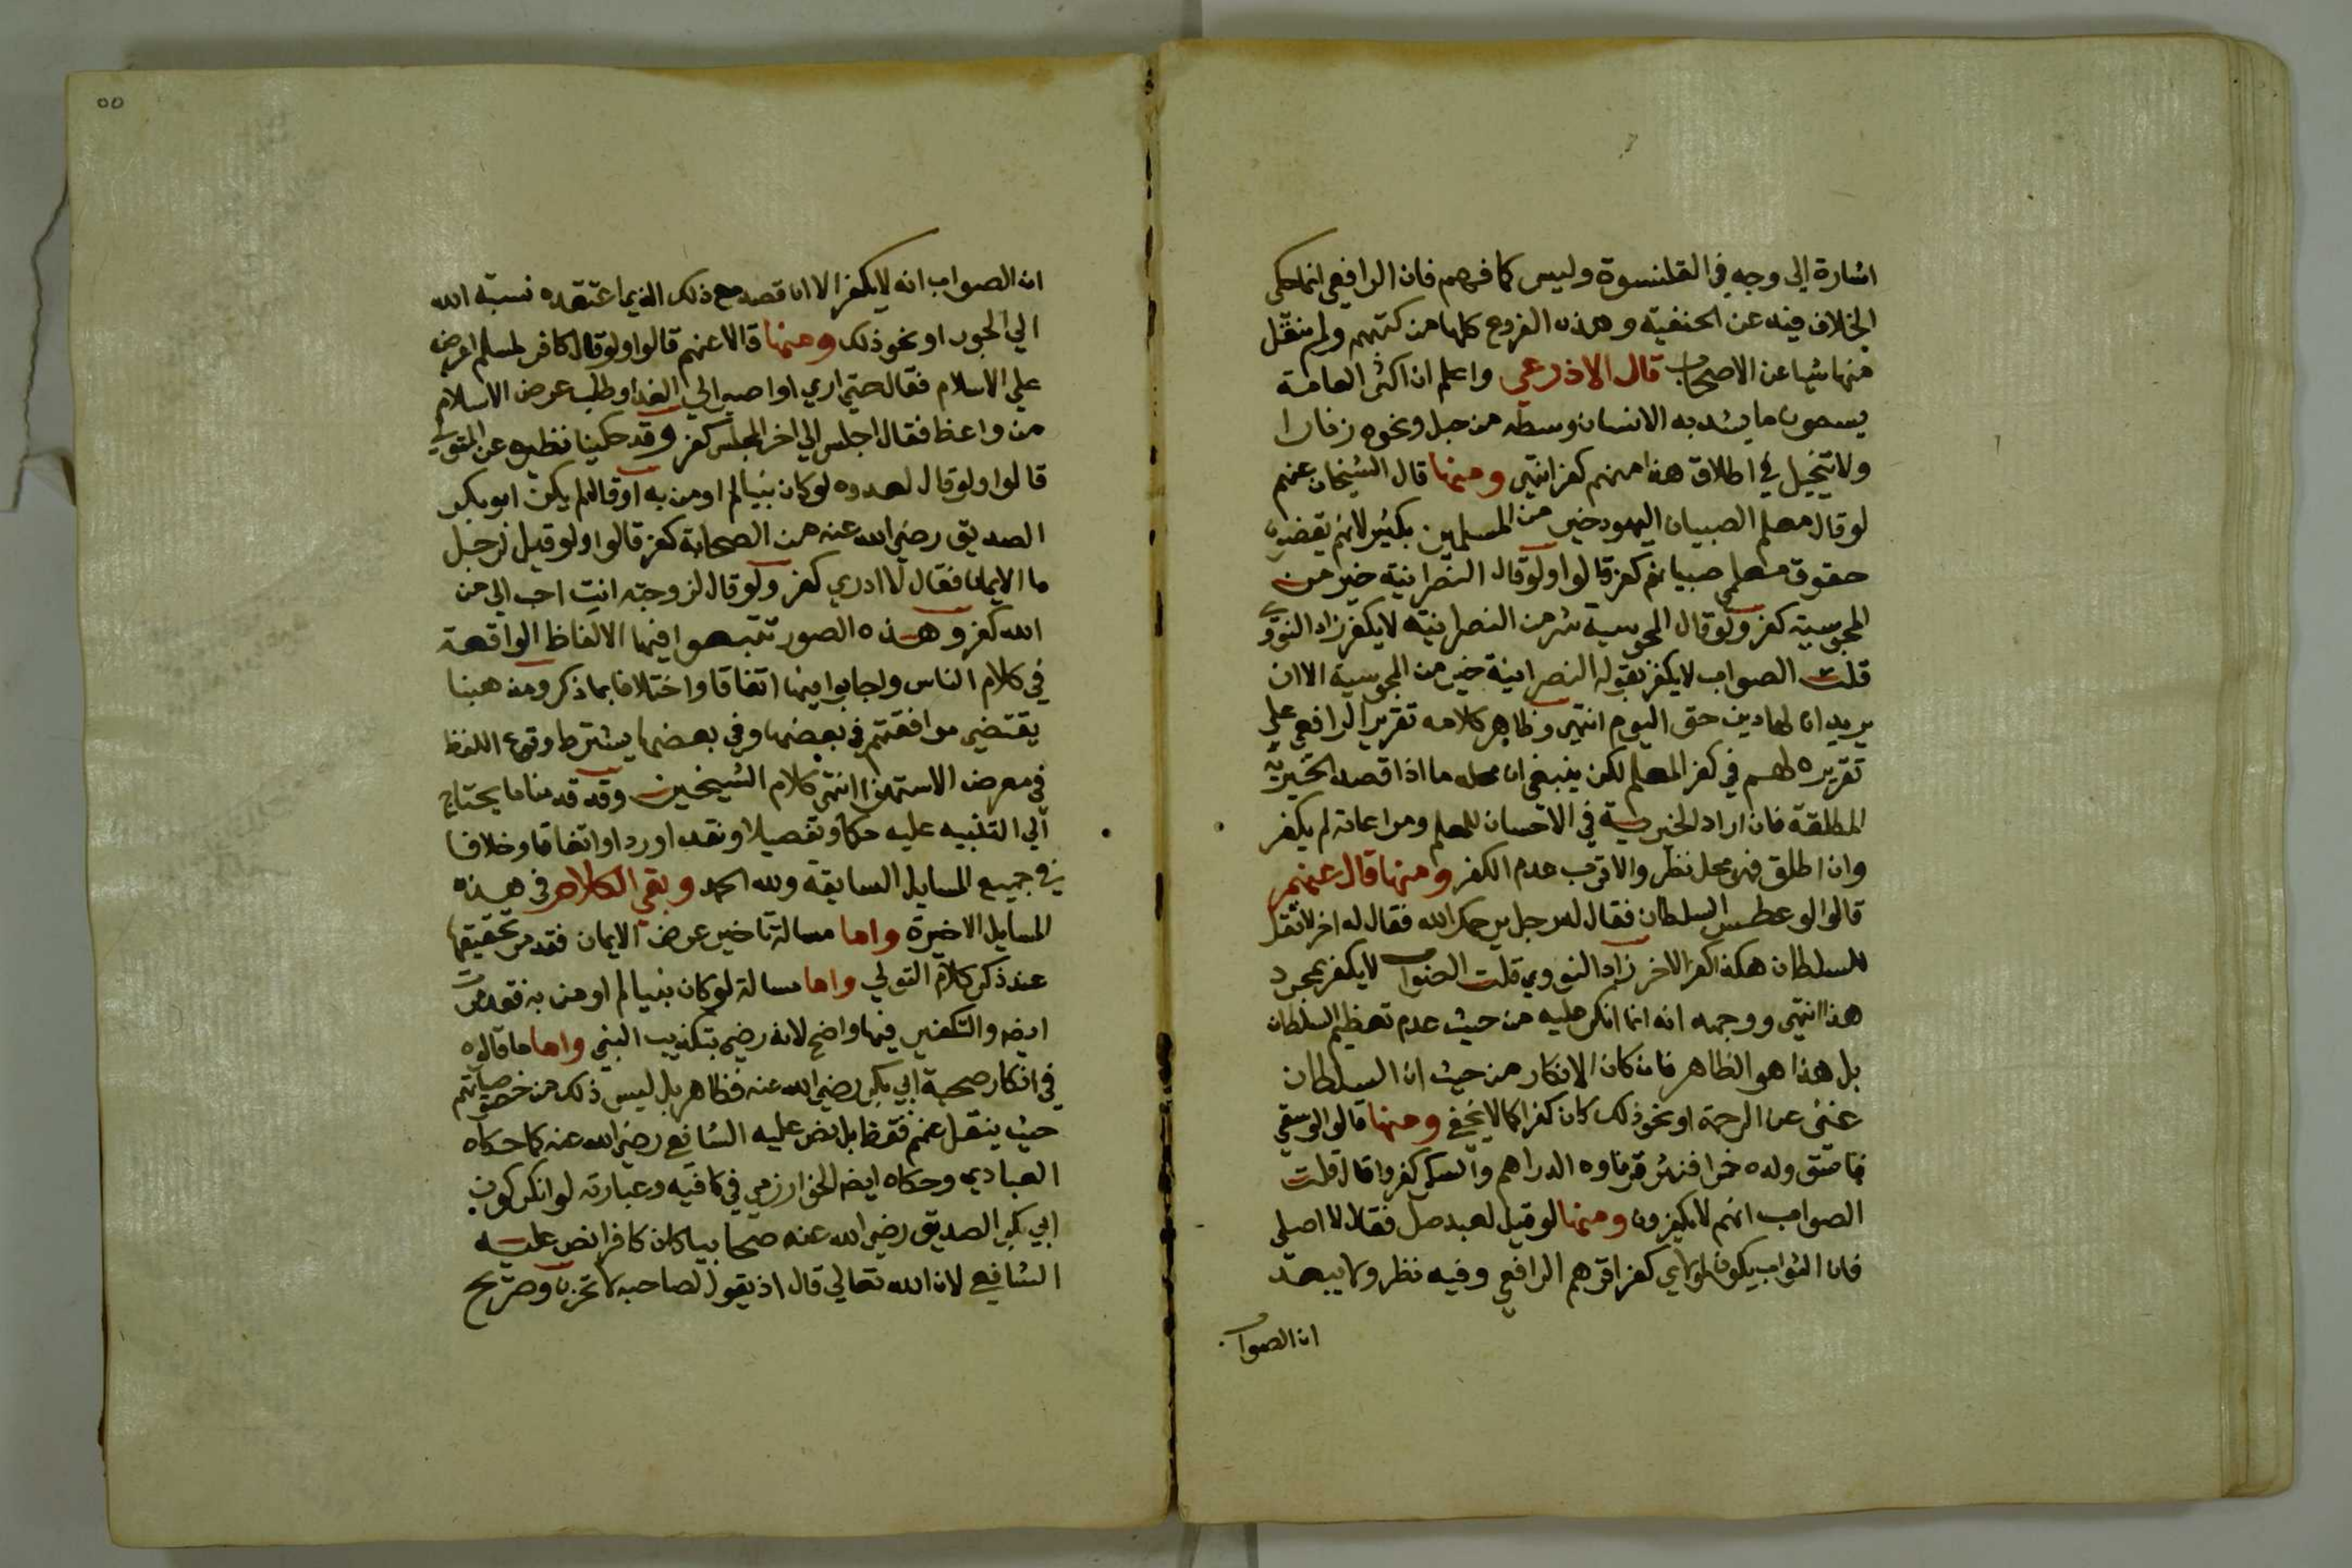 اشارة الي وجه في القلنسوة وليس كما فهم فان الرافعي انما حكي
الخلاف فيه عن الحنفية وهذه الفروع كلها من كتبهم ولم ينقل
منها شيا عن الاصحاب قال الاذرعي واعلم ان اكثر العامة
يسمون ما يشد به الانسان وسطه من حبل ونحوه زنارا
ولا يتخيل في اطلاق هذا منهم كفر انتهي ومنها قال الشيخان عنهم
لو قال معلم الصبيان اليهود خير من المسلمين بكثير لانهم يقضون
حقوق معلمي صبيانهم كفر قالوا ولو قال النصرانية خير من
المجوسية كفر ولو قال المجوسية شر من النصرانية لا يكفر زاد النووي
قلت الصواب لا يكفر بقوله النصرانية خير من المجوسية الا ان
يريد ان لها دين حق اليوم انتهي وظاهر كلامه تقرير الرافعي علي
تقريره لهم في كفر المعلم لكن ينبغي ان محله ما اذا قصد الخيرية
المطلقة فان اراد الخيرية في الاحسان للمعلم ومراعاته لم يكفر
وان اطلق فهو محل نظر والاقرب عدم الكفر ومنها قال عنهم
قالوا لو عطس السلطان فقال له رجل يرحمك الله فقال له اخر لا تقل
للسلطان هكذا كفر الاخر زاد النووي قلت الصواب لا يكفر بمجرد
هذا انتهي ووجهه انه انما انكر عليه من حيث عدم تعظيم السلطان
بل هذا هو الظاهر فان كان الانكار من حيث ان السلطان
غني عن الرحمة او نحو ذلك كان كفرا كما لا يخفي ومنها قالوا لو سقي
فاسق ولده خمرا فنثر قرباوه الدراهم والسكر كفروا قال قلت
الصواب انهم لا يكفرون ومنها لو قيل لعبد صل فقال لا اصلي
فان الثواب يكون لمولاي كفر اقرهم الرافعي وفيه نظر ولا يبعد
ان الصواب
٥٥
ان الصواب انه لا يكفر الا ان قصد مع ذلك الذي ما اعتقده نسبة الله
الي الجور او نحو ذلك ومنها قالا عنهم قالوا ولو قال كافر لمسلم اعرض
علي الاسلام فقال حتي اري او اصبر الي الغد او طلب عرض الاسلام
من واعظ فقال اجلس الي اخر المجلس كفر وقد حكينا نظيره عن المتولي
قالوا ولو قال لعدوه لو كان نبيا لم اومن به او قال لم يكن ابو بكر
الصديق رضي الله عنه من الصحابة كفر قالوا ولو قيل لرجل
ما الايمان فقال لا ادري كفر ولو قال لزوجته انت احب الي من
الله كفر وهذه الصور تتبعوا فيها الالفاظ الواقعة
في كلام الناس واجابوا فيها اتفاقا واختلافا بما ذكر ومذهبنا
يقتضي موافقتهم في بعضها وفي بعضها يشترط وقوع اللفظ
في معرض الاستهزا انتهي كلام الشيخين وقد قدمنا ما يحتاج
الي التنبيه عليه حكما وتفصيلا ونقدا وردا واتفاقا وخلافا
في جميع المسايل السابقة ولله الحمد وبقي الكلام في هذه
المسايل الاخيرة واما مسالة تاخير عرض الايمان فقد مر تحقيقها
عند ذكر كلام المتولي واما مسالة لو كان نبيا لم اومن به فقد مرت
ايضا والتكفير فيها واضح لانه رضي بتكذيب النبي واما ما قالوه
في انكار صحبة ابي بكر رضي الله عنه فظاهر بل ليس ذلك من خصوصياتهم
حيث ينقل عنهم فقط بل نص عليه الشافعي رضي الله عنه كما حكاه
العبادي وحكاه ايضا الخوارزمي في كافيه وعبارته لو انكر كون
ابي بكر الصديق رضي الله عنه صحابيا كان كافرا نص عليه
الشافعي لان الله تعالي قال اذ يقول لصاحبه لا تحزن وصريح